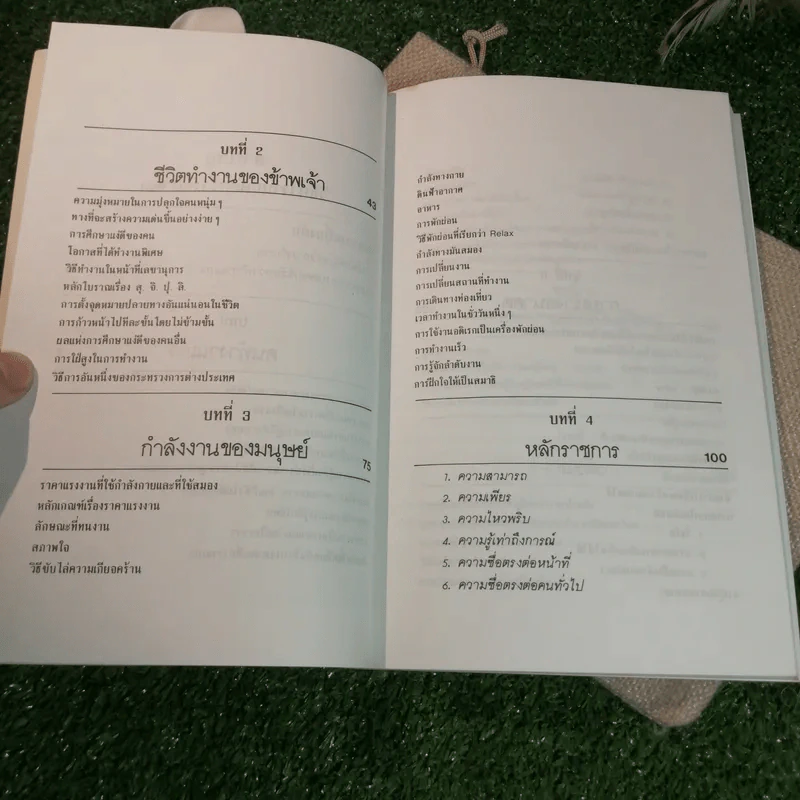 บทที่ 2
ชีวิตทำงานของข้าพเจ้า
43
ความมุ่งหมายในการปลุกใจคนหนุ่ม ๆ
ทางที่จะสร้างความเด่นขึ้นอย่างง่าย ๆ
การศึกษาแง่ดีของคน
โอกาสที่ได้ทำงานพิเศษ
วิธีทำงานในหน้าที่เลขานุการ
หลักโบราณเรื่อง สุ. จิ. ปุ. ลิ.
การตั้งจุดหมายปลายทางอันแน่นอนในชีวิต
การก้าวหน้าไปทีละขั้นโดยไม่ข้ามขั้น
ผลแห่งการศึกษาแง่ดีของคนอื่น
การใฝ่สูงในการทำงาน
วิธีการอันหนึ่งของกระทรวงการต่างประเทศ
บทที่ 3
กำลังงานของมนุษย์
75
ราคาแรงงานที่ใช้กำลังกายและที่ใช้สมอง
หลักเกณฑ์เรื่องราคาแรงงาน
ลักษณะที่ทนงาน
สภาพใจ
วิธีขับไล่ความเกียจคร้าน
กำลังทางกาย
ดินฟ้าอากาศ
อาหาร
การพักผ่อน
วิธีพักผ่อนที่เรียกว่า Relax
กำลังทางมันสมอง
การเปลี่ยนงาน
การเปลี่ยนสถานที่ทำงาน
การเดินทางท่องเที่ยว
เวลาทำงานในชั่ววันหนึ่ง ๆ
การใช้งานอดิเรกเป็นเครื่องพักผ่อน
การทำงานเร็ว
การรู้จักลำดับงาน
การฝึกใจให้เป็นสมาธิ
บทที่ 4
หลักราชการ
100
1. ความสามารถ
2. ความเพียร
3. ความไหวพริบ
4. ความรู้เท่าถึงการณ์
5. ความซื่อตรงต่อหน้าที่
6. ความซื่อตรงต่อคนทั่วไป